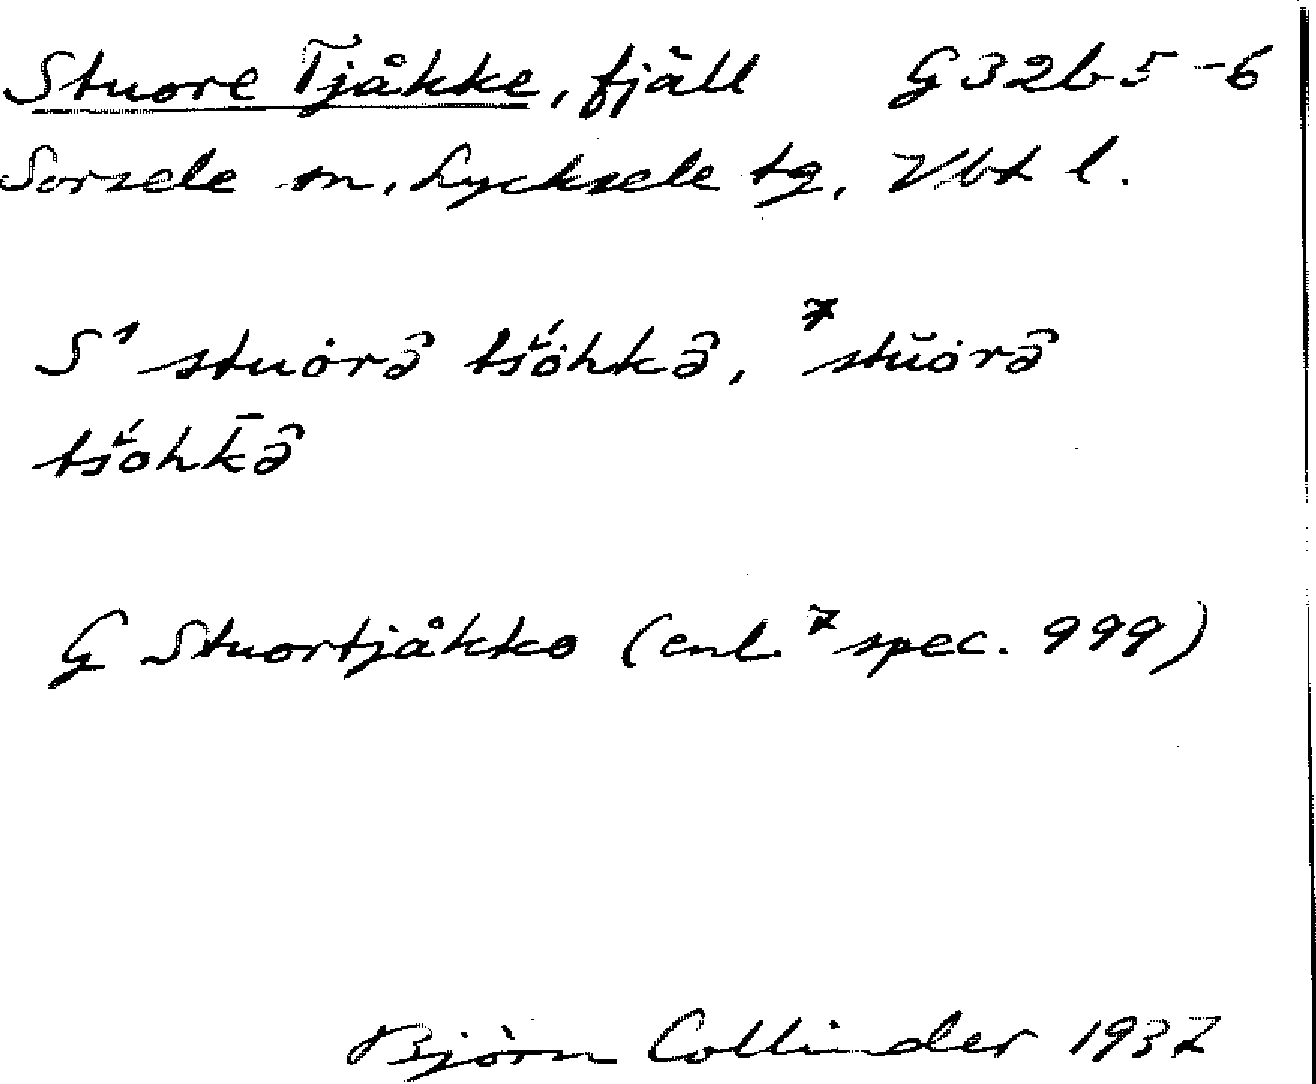 Stuore Tjåkke, fjäll G32b5-6
Sorsele sn, Lycksele tg, Vbt l.
S¹ stuȯrə̂ tšö́hkə̂, ⁷stŭȯrə̂
tšŏ́hk̄ə̂
G Stuortjåkko (enl. ⁷spec. 999)
Björn Collinder 1937